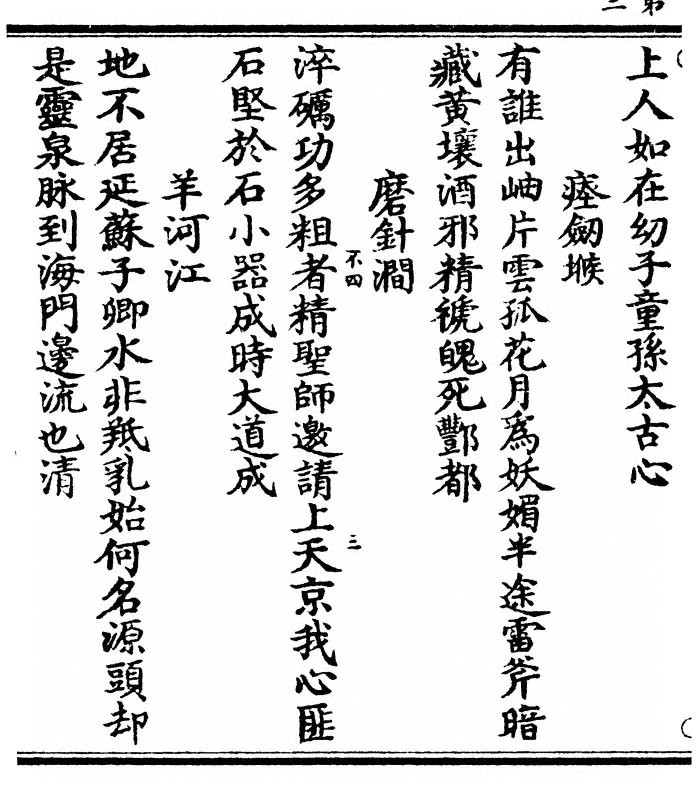 上人如在幼子童孫太古心
瘞劒堠
有誰出岫片雲孤花月爲妖媚半途雷斧暗
藏黄壤酒邪精褫魄死酆都
磨針澗
淬礪功多粗者精聖師邀請上天京我心匪
不四
三
石堅於石小器成時大道成
羊河江
地不居延蘇子卿水非羝乳始何名源頭却
是靈泉脉到海門邊流也清